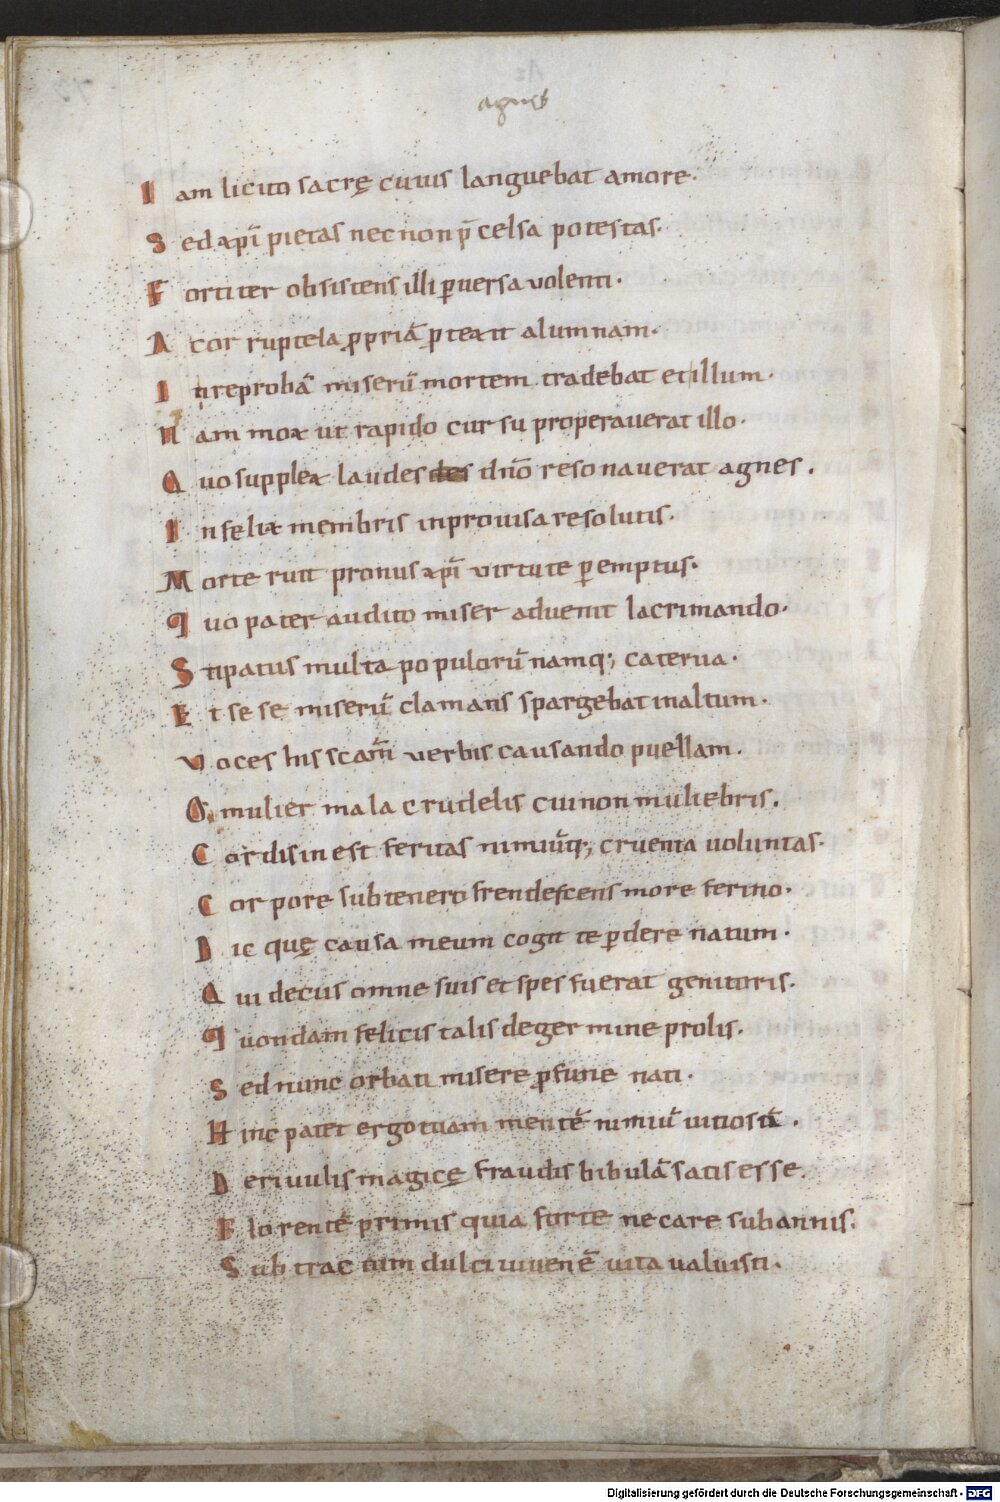 agnes
Iam licito sacrę cuius languebat amore.
Sed xp̄i pietas necnon p̄celsa potestas.
Fortiter obsistens illi ꝑuersa uolenti.
Acor ruptela ꝓpriā ꝓtexit alumnam.
Inreprobā miserū mortem tradebat et illum.
Nam mox ut rapido cursu properauerat illo.
Quo supplex laudes dn̄o resonauerat agnes.
Infelix membris inprouisa resolutis.
Morte ruit pronus xp̄i uirtute ꝑemptus.
Quo pater audito miser aduenit lacrimando.
Stipatus multa populorū namq; caterua.
Et sese miserū clamans spargebat inaltum.
Voces his scam̄ uerbis causando puellam.
O mulier mala crudelis cui non muliebris.
Cordis inest feritas nimiūq; cruenta uoluntas.
Corpore sub tenero frendescens more ferino.
Dic quę causa meum cogit te ꝑdere natum.
Qui decus omne suis et spes fuerat genitoris.
Quondam felicis talis de germine prolis.
Sed nunc orbati misere ꝓfune nati.
Hinc patet ergo tuam mentē nimiū uitiosā.
De riuulis magicę fraudis bibulā satis esse.
Florentē primis quia forte necare sub annis.
Subtractum dulci uiuenē uita ualuisti.
Digitalisierung gefördert durch die Deutsche Forschungsgemeinschaft - DFG